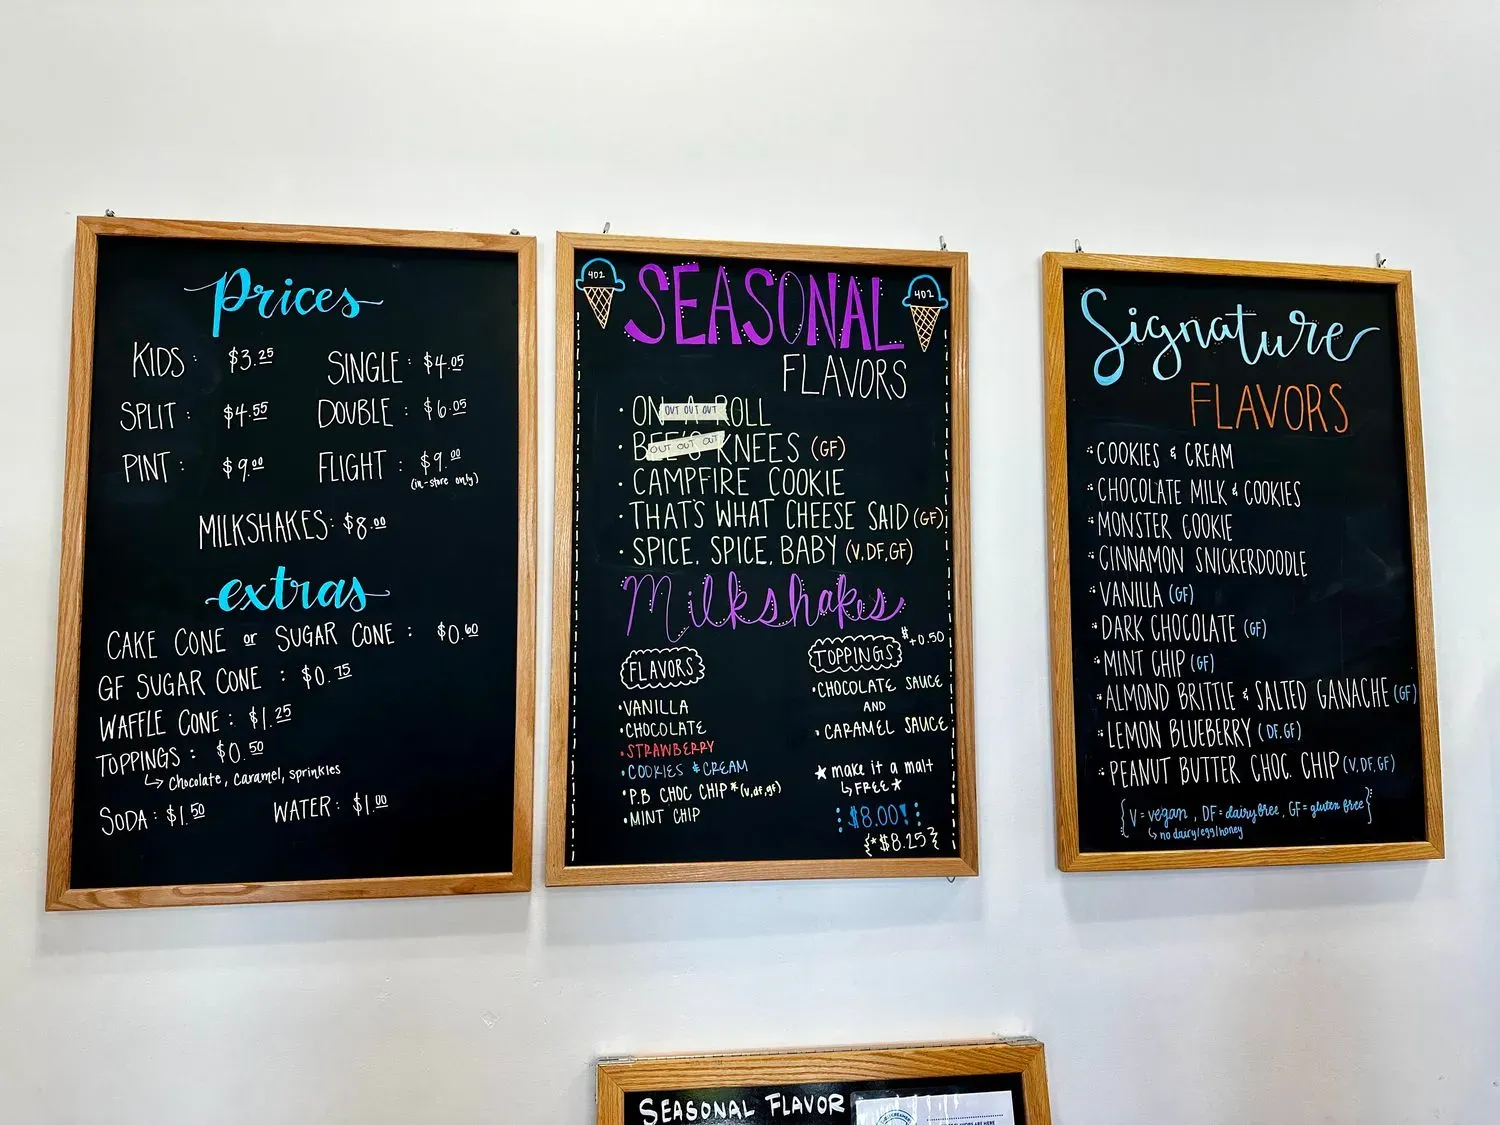 Prices
KIDS: $3.25
SINGLE: $4.05
SPLIT: $4.55
DOUBLE: $6.05
PINT: $9.00
FLIGHT: $9.00
(in-store only)
MILKSHAKES: $8.00
extras
CAKE CONE or SUGAR CONE: $0.60
GF SUGAR CONE: $0.75
WAFFLE CONE: $1.25
TOPPINGS: $0.50
↳ Chocolate, Caramel, sprinkles
SODA: $1.50
WATER: $1.00
402
402
SEASONAL
FLAVORS
• ON-A-ROLL
OUT OUT OUT
• BEE'S KNEES (GF)
OUT OUT OUT
• CAMPFIRE COOKIE
• THAT'S WHAT CHEESE SAID (GF)
• SPICE, SPICE, BABY (V,DF,GF)
Milkshakes
FLAVORS
• VANILLA
• CHOCOLATE
• STRAWBERRY
• COOKIES & CREAM
• P.B CHOC CHIP * (V,df,gf)
• MINT CHIP
TOPPINGS $+0.50
• CHOCOLATE SAUCE
AND
• CARAMEL SAUCE
★ make it a malt
↳ FREE ★
$8.00!
{*$8.25}
Signature
FLAVORS
COOKIES & CREAM
CHOCOLATE MILK & COOKIES
MONSTER COOKIE
CINNAMON SNICKERDOODLE
VANILLA (GF)
DARK CHOCOLATE (GF)
MINT CHIP (GF)
ALMOND BRITTLE & SALTED GANACHE (GF)
LEMON BLUEBERRY (DF,GF)
PEANUT BUTTER CHOC. CHIP (V,DF,GF)
{V = vegan, DF = dairy free, GF = gluten free}
↳ no dairy/egg/honey
SEASONAL FLAVOR